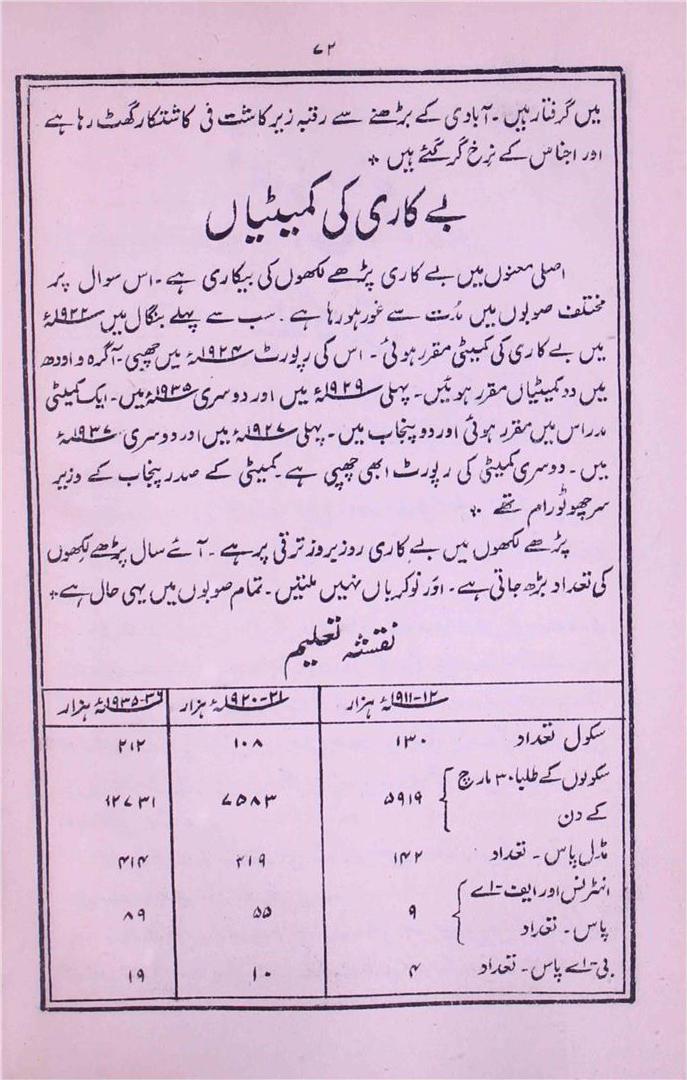 ۷۲
میں گرفتار ہیں۔ آبادی کے بڑھنے سے رقبہ زیر کاشت فی کاشتکار گھٹ رہا ہے
اور اجناس کے نرخ گر گئے ہیں ٭
بے کاری کی کمیٹیاں
اصلی معنوں میں بے کاری پڑھے لکھوں کی بیکاری ہے۔ اس سوال پر
مختلف صوبوں میں مُدت سے غور ہو رہا ہے۔ سب سے پہلے بنگال میں ۱۹۲۲ء
میں بے کاری کی کمیٹی مقرر ہوئی۔ اس کی رپورٹ ۱۹۲۴ء میں چھپی۔ آگرہ و اودھ
میں دو کمیٹیاں مقرر ہوئیں۔ پہلی ۱۹۲۹ء میں اور دوسری ۱۹۳۵ء میں۔ ایک کمیٹی
مدراس میں مقرر ہوئی اور دو پنجاب میں۔ پہلی ۱۹۲۷ء میں اور دوسری ۱۹۳۷ء
میں۔ دوسری کمیٹی کی رپورٹ ابھی چھپی ہے۔ کمیٹی کے صدر پنجاب کے وزیر
سر چھوٹو رام تھے ٭
پڑھے لکھوں میں بے کاری روز بروز ترقی پر ہے۔ آئے سال پڑھے لکھوں
کی تعداد بڑھ جاتی ہے۔ اور نوکریاں نہیں ملتیں۔ تمام صوبوں میں یہی حال ہے٭
نقشہ تعلیم
۱۲-۱۹۱۱ء ہزار ۲۱-۱۹۲۰ء ہزار ۳۶-۱۹۳۵ء ہزار
سکول تعداد ۱۳۰ ۱۰۸ ۲۱۲
سکولوں کے طلبا ۳۰ مارچ
کے دن ۵۹۱۹ ۷۵۸۳ ۱۲۷۳۱
مڈل پاس۔ تعداد ۱۴۲ ۲۱۹ ۴۱۴
انٹرنس اور ایف-اے
پاس۔ تعداد ۹ ۵۵ ۸۹
بی-اے پاس۔ تعداد ۴ ۱۰ ۱۹